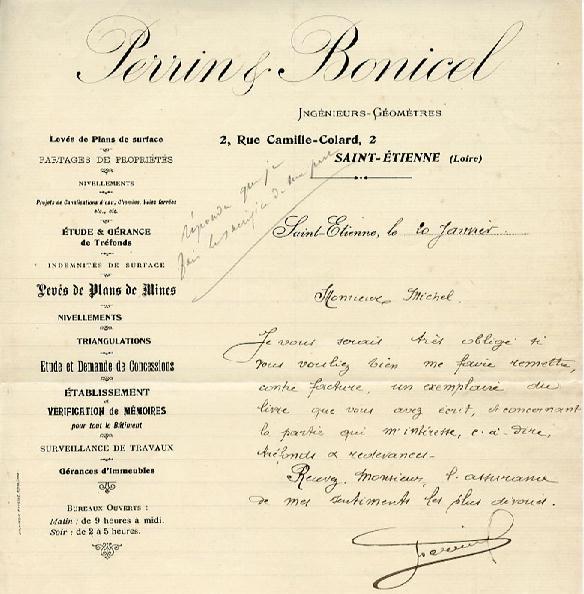 Perrin & Bonicel
INGÉNIEURS-GÉOMÈTRES
2, Rue Camille-Colard, 2
SAINT-ÉTIENNE (Loire)
Levés de Plans de surface
PARTAGES DE PROPRIÉTÉS
NIVELLEMENTS
Projets de Canalisations d'eau, Chemins, Voies ferrées
etc., etc.
ÉTUDE & GÉRANCE
de Tréfonds
INDEMNITÉS DE SURFACE
Levés de Plans de Mines
NIVELLEMENTS
TRIANGULATIONS
Etude et Demande de Concessions
ÉTABLISSEMENT
ET
VÉRIFICATION DE MÉMOIRES
pour tout le Bâtiment
SURVEILLANCE DE TRAVAUX
Gérances d'Immeubles
BUREAUX OUVERTS :
Matin : de 9 heures à midi.
Soir : de 2 à 5 heures.
répondu que je
fais le sacrifice de
Saint-Etienne, le 20 Janvier
Monsieur Michel.
Je vous serais très obligé si
vous vouliez bien me faire remettre,
contre facture, un exemplaire du
livre que vous avez écrit, et concernant
la partie qui m'intéresse, c. à. dire,
tréfonds & redevances.
Recevez, Monsieur, l'assurance
de mes sentiments les plus dévoués.
Perrin